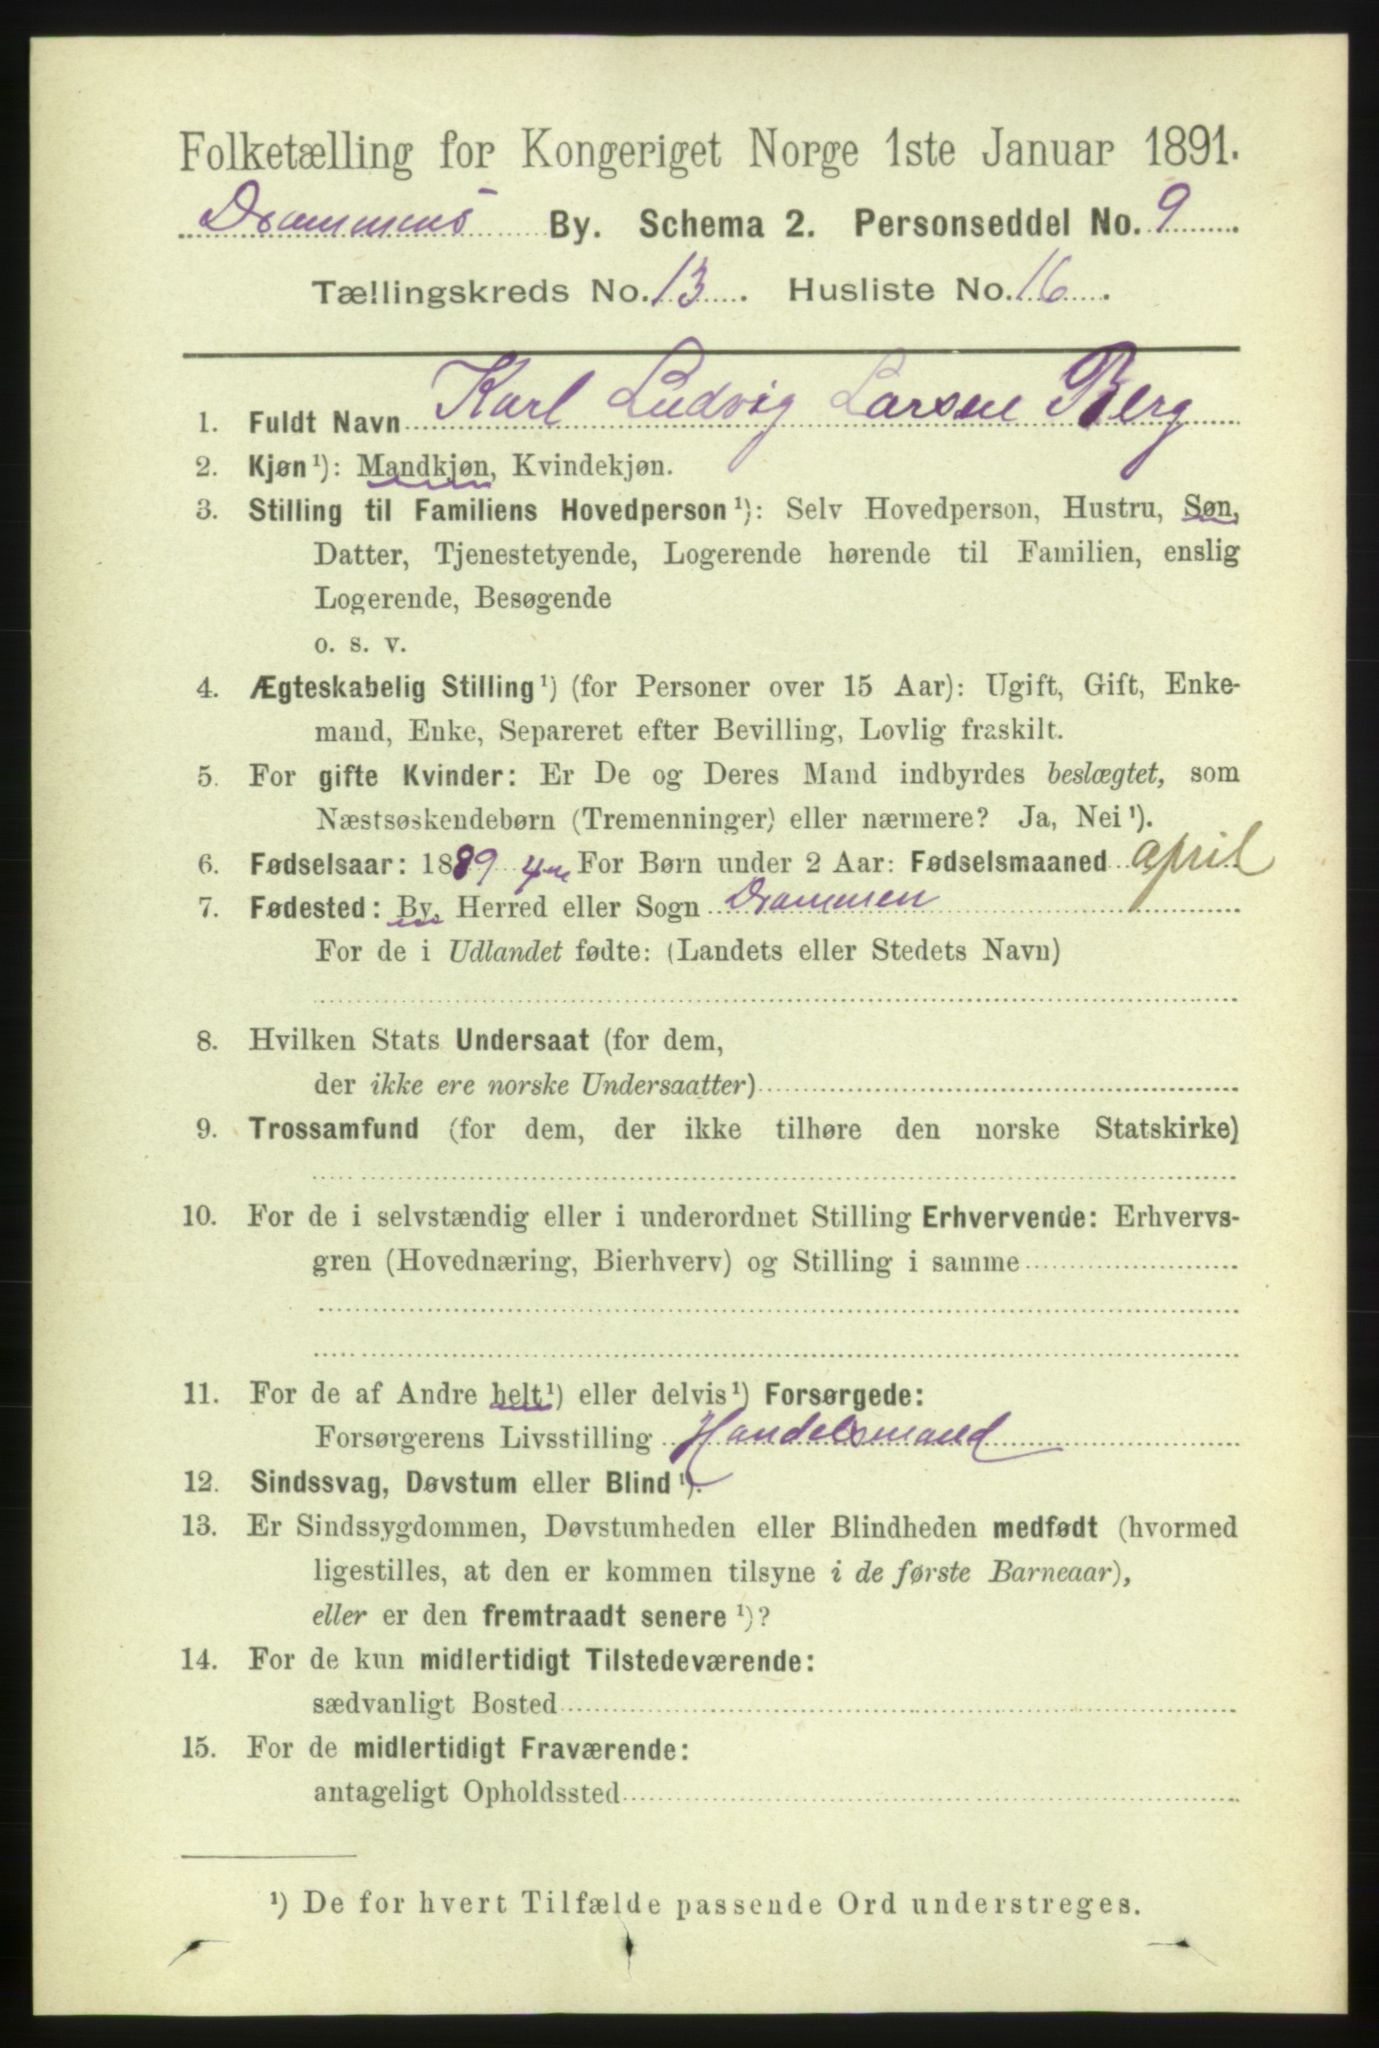 Folketælling for Kongeriget Norge 1ste Januar 1891.
Drammens By. Schema 2. Personseddel No. 9
Tællingskreds No. 13. Husliste No. 16.
1. Fuldt Navn Karl Ludvig Larsen Berg
2. Kjøn¹): Mandkjøn, Kvindekjøn.
3. Stilling til Familiens Hovedperson¹): Selv Hovedperson, Hustru, Søn,
Datter, Tjenestetyende, Logerende hørende til Familien, enslig
Logerende, Besøgende
o. s. v.
4. Ægteskabelig Stilling¹) (for Personer over 15 Aar): Ugift, Gift, Enke-
mand, Enke, Separeret efter Bevilling, Lovlig fraskilt.
5. For gifte Kvinder: Er De og Deres Mand indbyrdes beslægtet, som
Næstsøskendebørn (Tremenninger) eller nærmere? Ja, Nei¹).
6. Fødselsaar: 1889 For Børn under 2 Aar: Fødselsmaaned april
7. Fødested: By, Herred eller Sogn Drammen
For de i Udlandet fødte: (Landets eller Stedets Navn)
8. Hvilken Stats Undersaat (for dem,
der ikke ere norske Undersaatter)
9. Trossamfund (for dem, der ikke tilhøre den norske Statskirke)
10. For de i selvstændig eller i underordnet Stilling Erhvervende: Erhvervs-
gren (Hovednæring, Bierhverv) og Stilling i samme
11. For de af Andre helt¹) eller delvis¹) Forsørgede:
Forsørgerens Livsstilling Handelsmand
12. Sindssvag, Døvstum eller Blind¹).
13. Er Sindssygdommen, Døvstumheden eller Blindheden medfødt (hvormed
ligestilles, at den er kommen tilsyne i de første Barneaar),
eller er den fremtraadt senere¹)?
14. For de kun midlertidigt Tilstedeværende:
sædvanligt Bosted
15. For de midlertidigt Fraværende:
antageligt Opholdssted
¹) De for hvert Tilfælde passende Ord understreges.